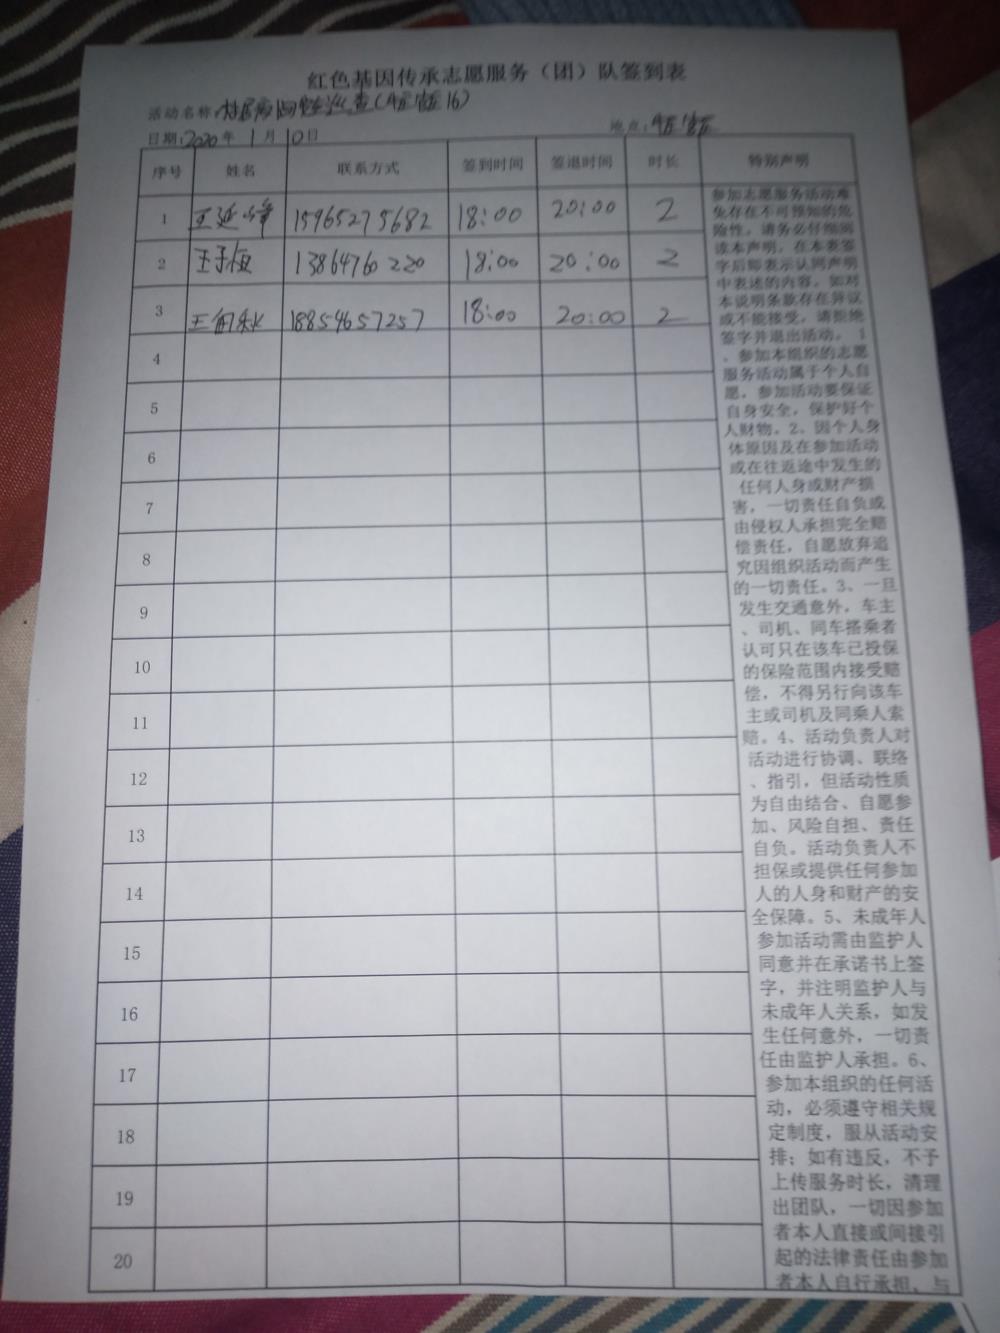 红色基因传承志愿服务（团）队签到表
活动名称：
日期：2020年 1月 10日 地点：
序号 姓名 联系方式 签到时间 签退时间 时长 特别声明
1 王延峰 15965275682 18:00 20:00 2
2 13864760220 18:00 20:00 2
3 18854657257 18:00 20:00 2
4
5
6
7
8
9
10
11
12
13
14
15
16
17
18
19
20
参加志愿服务活动难
免存在不可预知的危
险性，请务必仔细阅
读本声明，在本表签
字后即表示认同声明
中表述的内容。如对
本说明条款存在异议
或不能接受，请拒绝
签字并退出活动。 1
、参加本组织的志愿
服务活动属于个人自
愿，参加活动要保证
自身安全，保护好个
人财物。2、因个人身
体原因及在参加活动
或在往返途中发生的
任何人身或财产损
害，一切责任自负或
由侵权人承担完全赔
偿责任，自愿放弃追
究因组织活动而产生
的一切责任。3、一旦
发生交通意外，车主
、司机、同车搭乘者
认可只在该车已投保
的保险范围内接受赔
偿，不得另行向该车
主或司机及同乘人索
赔。4、活动负责人对
活动进行协调、联络
、指引，但活动性质
为自由结合、自愿参
加、风险自担、责任
自负。活动负责人不
担保或提供任何参加
人的人身和财产的安
全保障。5、未成年人
参加活动需由监护人
同意并在承诺书上签
字，并注明监护人与
未成年人关系，如发
生任何意外，一切责
任由监护人承担。6、
参加本组织的任何活
动，必须遵守相关规
定制度，服从活动安
排；如有违反，不予
上传服务时长，清理
出团队，一切因参加
者本人直接或间接引
起的法律责任由参加
者本人自行承担，与